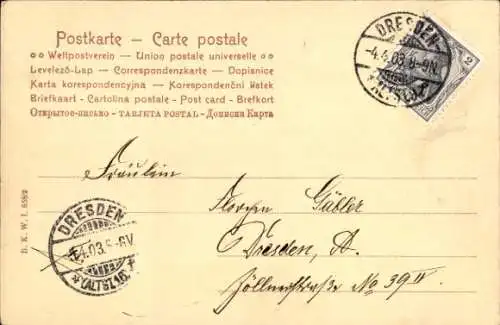 Postkarte — Carte postale
Weltpostverein — Union postale universelle
Levelező-Lap — Correspondenzkarte — Dopisnice
Karta korespondencyjna — Korespondenční lístek
Briefkaart - Cartolina postale - Post card - Brefkort
Открытое-письмо - TARJETA POSTAL - Дописна Карта
DRESDEN
-4.4.03.8-9N.
*(ALTST.)
2
Fräulein
Gübler
Dresden, A.
Zöllnerstraße No 39 II
DRESDEN
4.03.
*(ALTST.)16.
B. K. W. I. 658/2